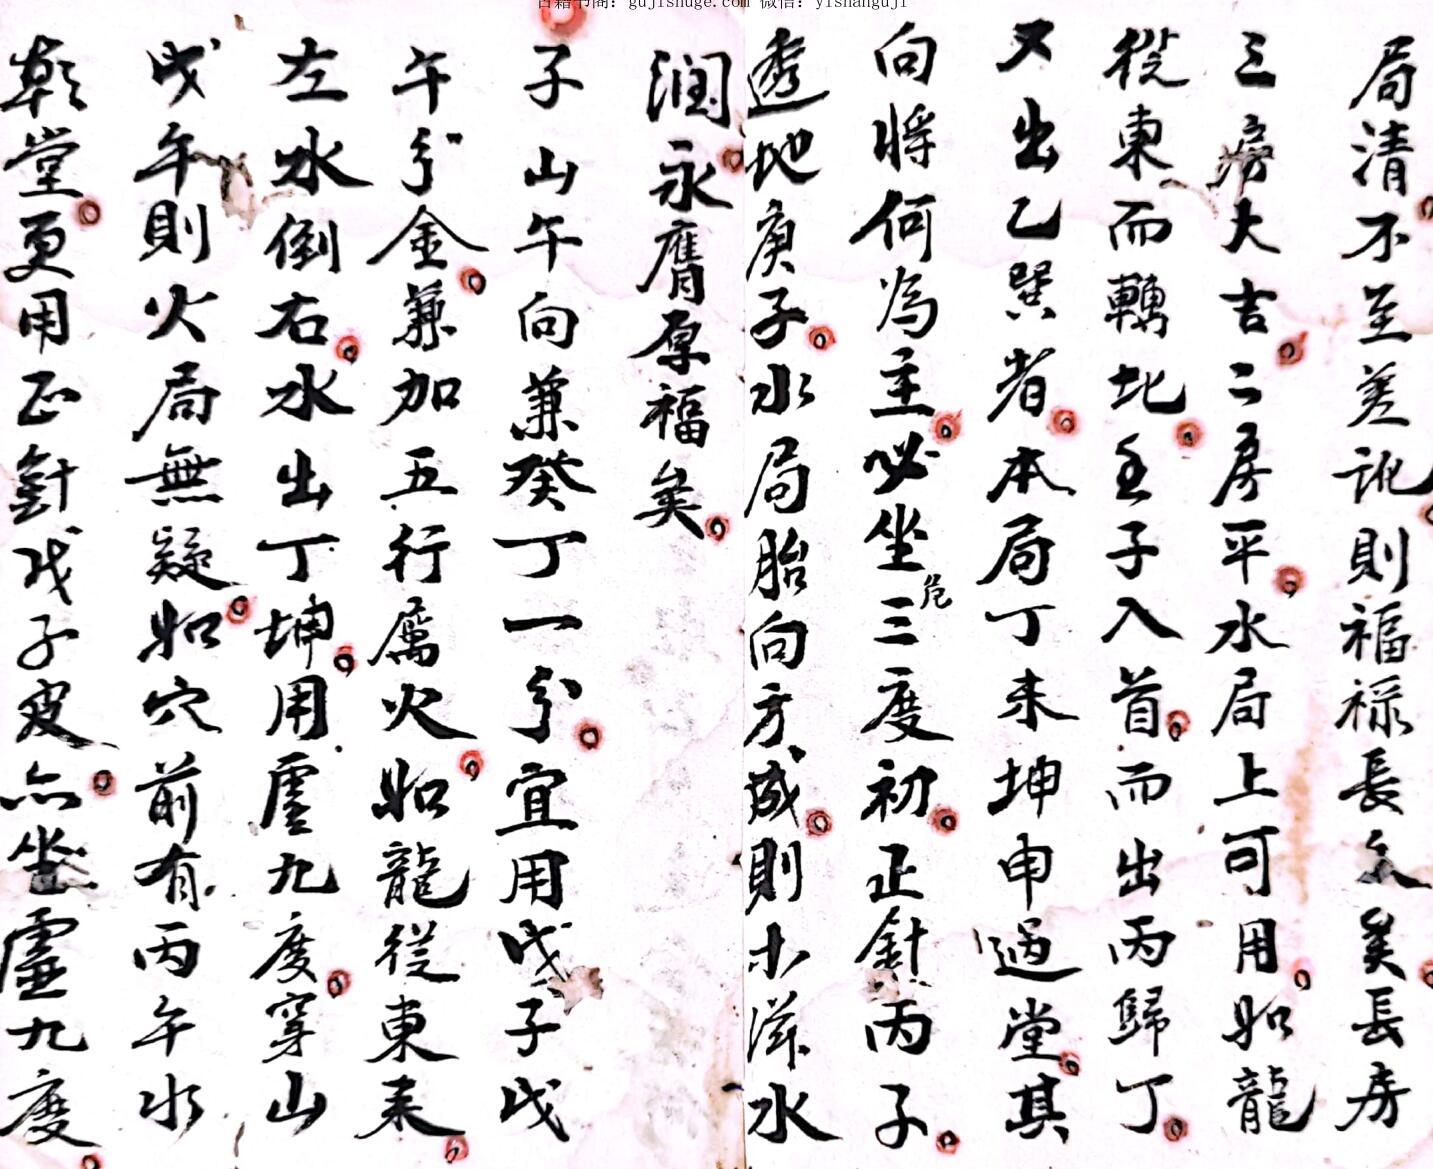 古籍书阁：gujishuge.com 微信：yishanguji
局清不至差訛則福祿長久矣長房
三房大吉二房平水局上可用如龍
從東而轉北壬子入首而出丙歸丁
又出乙巽者本局丁未坤申過堂其
向將何為主必坐危三度初正針丙子
透地庚子水局胎向方成則木滋水
潤永膺厚福矣
子山午向兼癸丁一分宜用戊子戊
午分金兼加五行屬火如龍從東來
左水倒右水出丁坤用虛九度穿山
戊午則火局無疑如穴前有丙午水
朝堂更用正針戊子皮亦坐虛九度